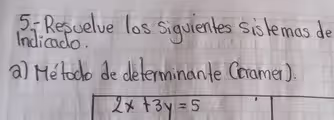 5.- Resuelve los siguientes sistemas de
Indicado.
a) Método de determinante (Cramer).
2x + 3y = 5